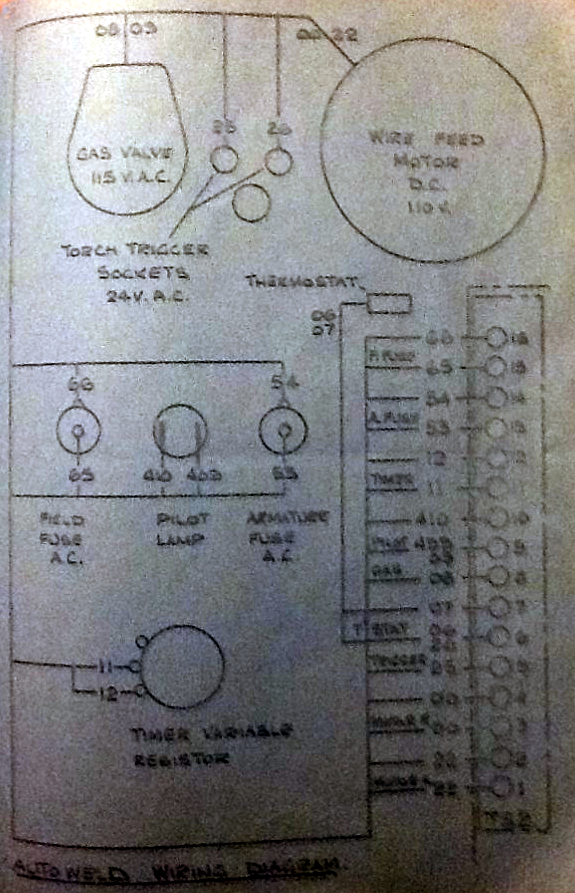 08 09
22
GAS VALVE
115 V. A.C.
25
26
WIRE FEED
MOTOR
D.C.
110 V.
TORCH TRIGGER
SOCKETS
24V. A.C.
THERMOSTAT
06
07
66
65
54
53
12
11
410
08
07
25
22
22
F. FUSE
A. FUSE
TIMER
GAS
T'STAT
TRIGGER
16
15
14
13
12
11
10
9
8
7
6
5
4
3
2
1
66
65
410
54
53
FIELD
FUSE
A.C.
PILOT
LAMP
ARMATURE
FUSE
A.C.
11
12
TIMER VARIABLE
RESISTOR
AUTOWELD WIRING DIAGRAM